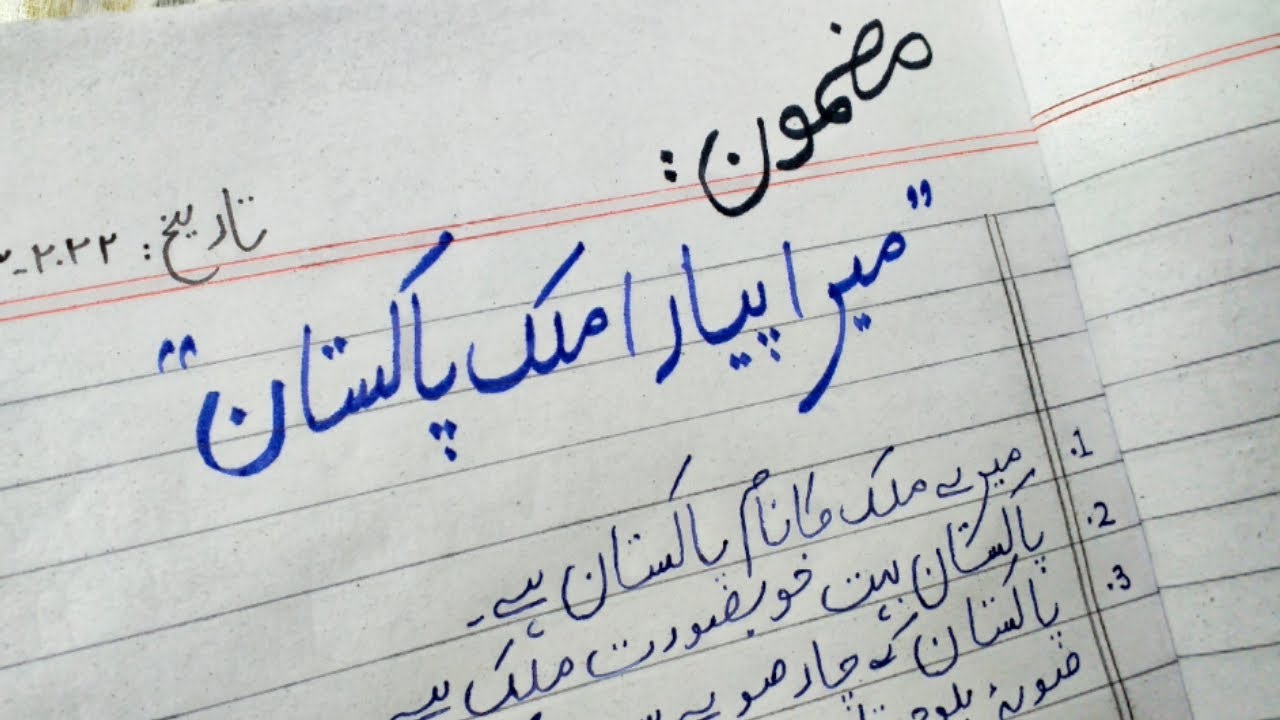 مضمون:
تاریخ: ۲۰۲۲-
"میرا پیارا ملک پاکستان"
1. میرے ملک کا نام پاکستان ہے۔
2. پاکستان بہت خوبصورت ملک ہے
3. پاکستان کے چار صوبے
صوبۂ